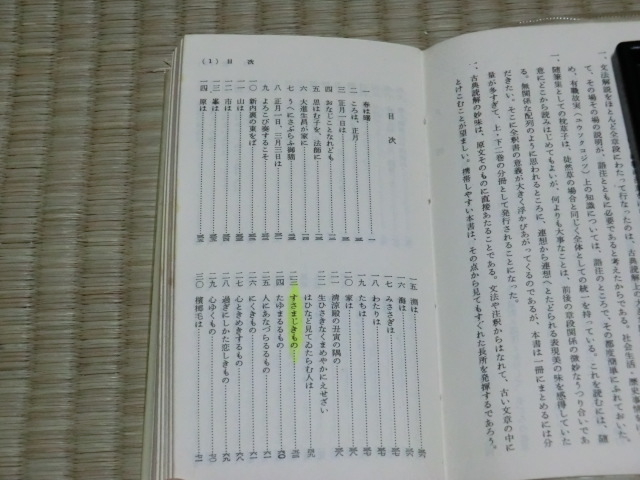 一、文法解説をほとんど全章段にわたって行なったのは、古典読解上
て、その場の場の説明が、語注とともに必要であると考えたからである。社会生活・歴史事
め、有職故実（ユウソクコジツ）上の知識については、語注のところで、その都度簡単にふれておいた。
一、随筆集としての枕草子は、徒然草の場合と同じく全体としての統一も持っている。これを読むには、随
意にどこから読みはじめてもよいが、何よりも大事なことは、前後の章段関係の微妙なうつり合いであ
る。無関係な配列のように思われるところに、連想から連想へとたどられる表現美の味を感得していた
だきたい。そこに全釈書の意義が大きく浮かびあがってくるのであるが、本書は一冊にまとめるには分
量が多すぎて、上・下二巻の分冊として発行されることになった。
一、古典読解の妙味は、原文そのものに直接あたることである。文法や注釈からはなれて、古い文章の中に
とけこむことが望ましい。携帯しやすい本書は、その点から見てもすぐれた長所を発揮するであろう。
(1) 目 次
目 次
一 春は曙
二 ころは、正月
三 正月一日は
四 おなじことなれども
五 思はむ子を、法師に
六 大進生昌が家に
七 うへにさぶらふ御猫
八 正月一日、三月三日は
九 よろこび奏するこそ
一〇 新内裏の東をば
一一 山は
一二 市は
一三 峯は
一四 原は
一五 淵は
一六 海は
一七 みささぎは
一八 わたりは
一九 たちは
二〇 家は
二一 清涼殿の丑寅の隅の
二二 生ひさきなくまめやかにえせざい
はひなど見てゐたらむ人は
二三 すさまじきもの
二四 たゆまるるもの
二五 人にあなづらるるもの
二六 にくきもの
二七 心ときめきするもの
二八 過ぎにしかた恋しきもの
二九 心ゆくもの
三〇 檳榔毛は